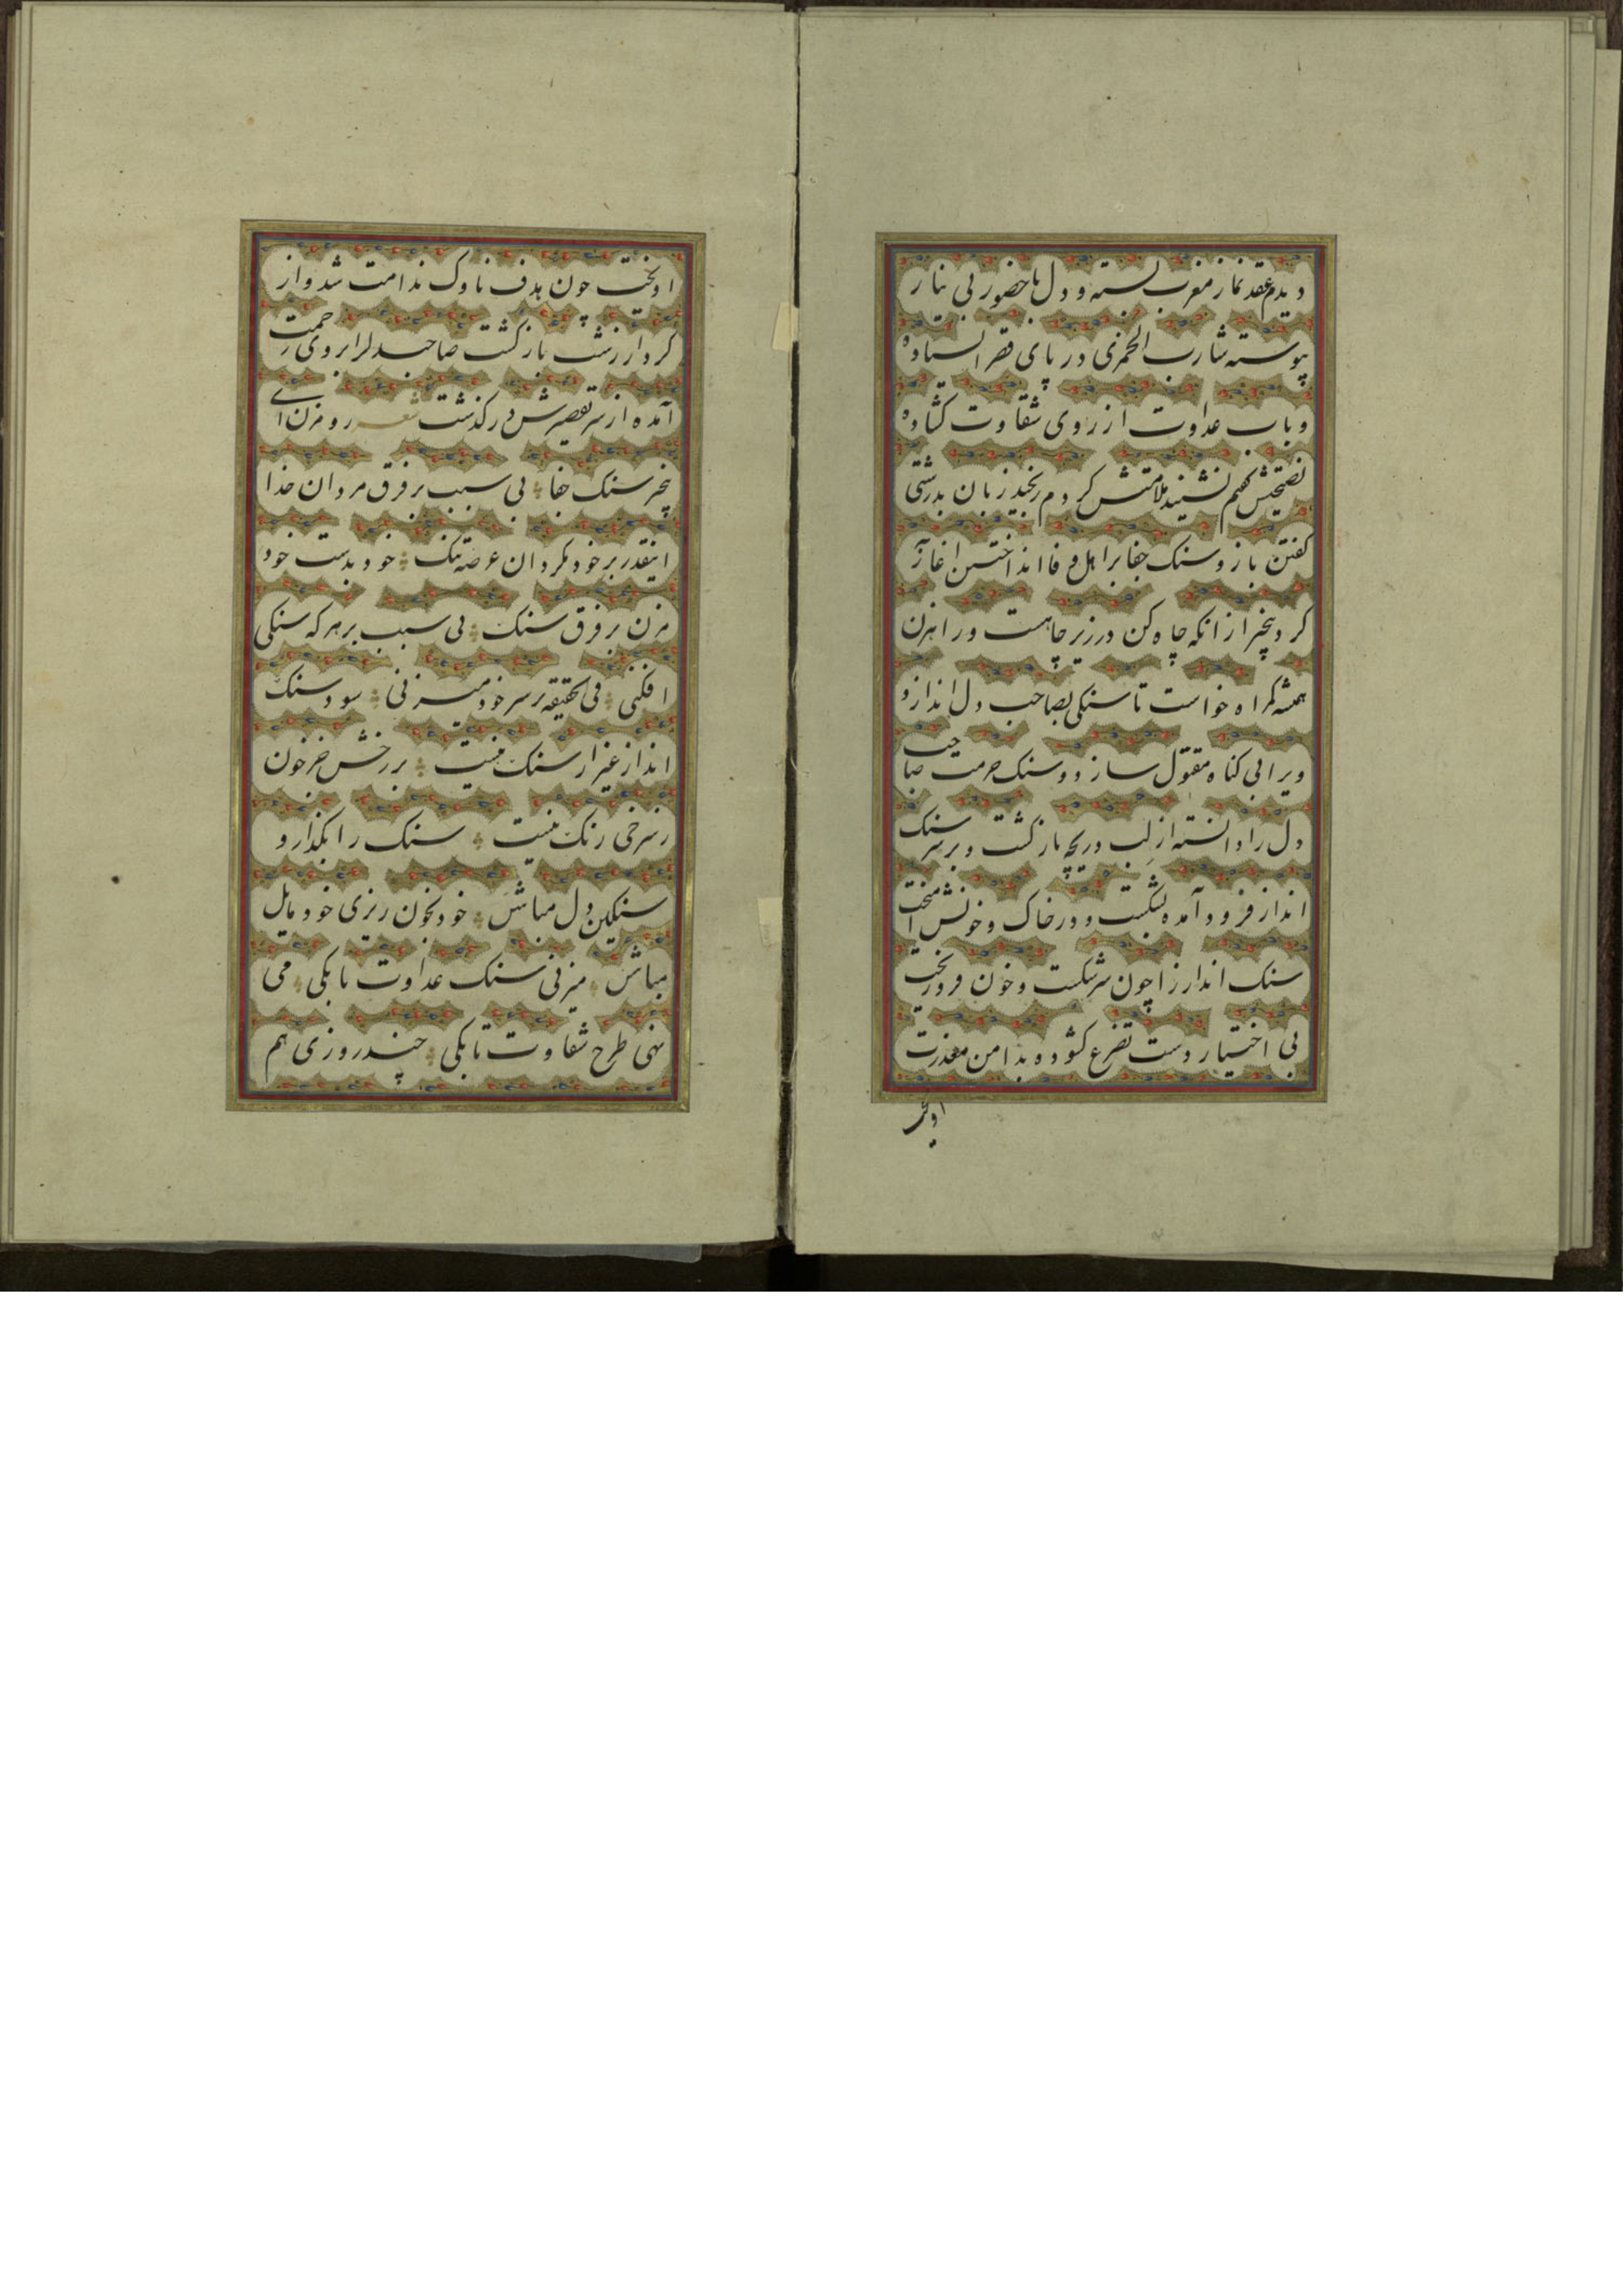 دیدم عقد نماز مغرب بسته و دل با حضور بی نیاز
پیوسته شارب الخمری در پای قصر استاده
و باب عداوت از روی شقاوت کشاده
نصیحتش گفتم نشنید ملامتش کردم رنجید زبان بدرشتی
گفتن باز و سنک جفا بر اهل وفا انداختن اغاز
کرد بیخبر از انکه چاه کن در زیر چاهست و راهزن
همیشه گمراه خواست تا سنکی بصاحب دل اندازد و
ویرا بی کناه مقتول سازد و سنک حرمت صاحب
دل را دانسته از لب دریچه بازگشت و بر سر سنک
انداز فرود آمده بشکست و در خاک و خونش آمیخت
سنک انداز را چون سر شکست و خون فرو ریخت
بی اختیار دست تضرع کشوده بدامن معذرت
اویخت
اویخت چون هدف ناوک ندامت شد و از
کردار زشت بازگشت صاحبدل را بروی رحمت
آمده از سر تقصیرش در گذشت شعر رو مزن ای
بیخبر سنک جفا بی سبب بر فرق مردان خدا
اینقدر بر خود مکردان عرصه تنک خود بدست خود
مزن بر فرق سنک بی سبب بر هر که سنکی
افکنی فی الحقیقه بر سر خود میزنی سود سنک
انداز غیر از سنک نیست بر رخش جز خون
ز سرخی رنک نیست سنک را بگذار و
سنکین دل مباش خود بخون ریزی خود مایل
مباش میزنی سنک عداوت تا بکی می
نهی طرح شقاوت تا بکی چند روزی هم